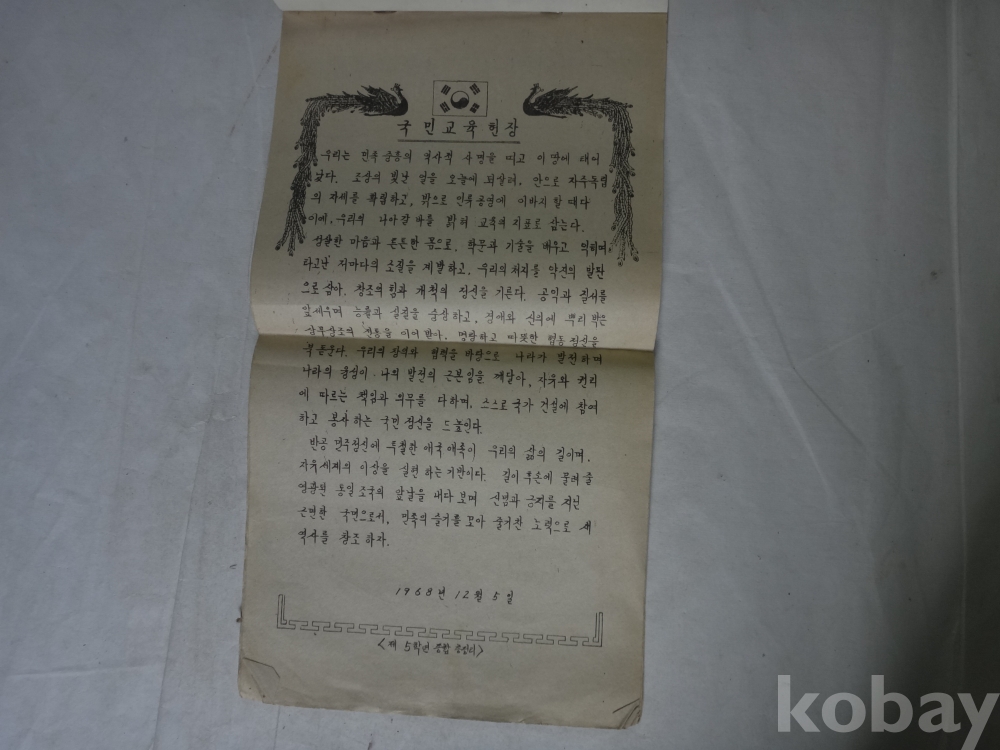 국민교육헌장
우리는 민족 중흥의 역사적 사명을 띠고 이 땅에 태어
났다. 조상의 빛난 얼을 오늘에 되살려, 안으로 자주독립
의 자세를 확립하고, 밖으로 인류공영에 이바지할 때다
이에, 우리의 나아갈 바를 밝혀 교육의 지표로 삼는다.
성실한 마음과 튼튼한 몸으로, 학문과 기술을 배우고 익히며,
타고난 저마다의 소질을 계발하고, 우리의 처지를 약진의 발판
으로 삼아, 창조의 힘과 개척의 정신을 기른다. 공익과 질서를
앞세우며 능률과 실질을 숭상하고, 경애와 신의에 뿌리 박은
상부상조의 전통을 이어 받아, 명랑하고 따뜻한 협동 정신을
북돋운다. 우리의 창의와 협력을 바탕으로 나라가 발전하며
나라의 융성이 나의 발전의 근본임을 깨달아, 자유와 권리
에 따르는 책임과 의무를 다하며, 스스로 국가 건설에 참여
하고 봉사하는 국민 정신을 드높인다.
반공 민주정신에 투철한 애국애족이 우리의 삶의 길이며,
자유세계의 이상을 실현하는 기반이다. 길이 후손에 물려줄
영광된 통일 조국의 앞날을 내다보며 신념과 긍지를 지닌
근면한 국민으로서, 민족의 슬기를 모아 줄기찬 노력으로 새
역사를 창조하자.
1968년 12월 5일
<제 5학년 종합 총정리>
kobay